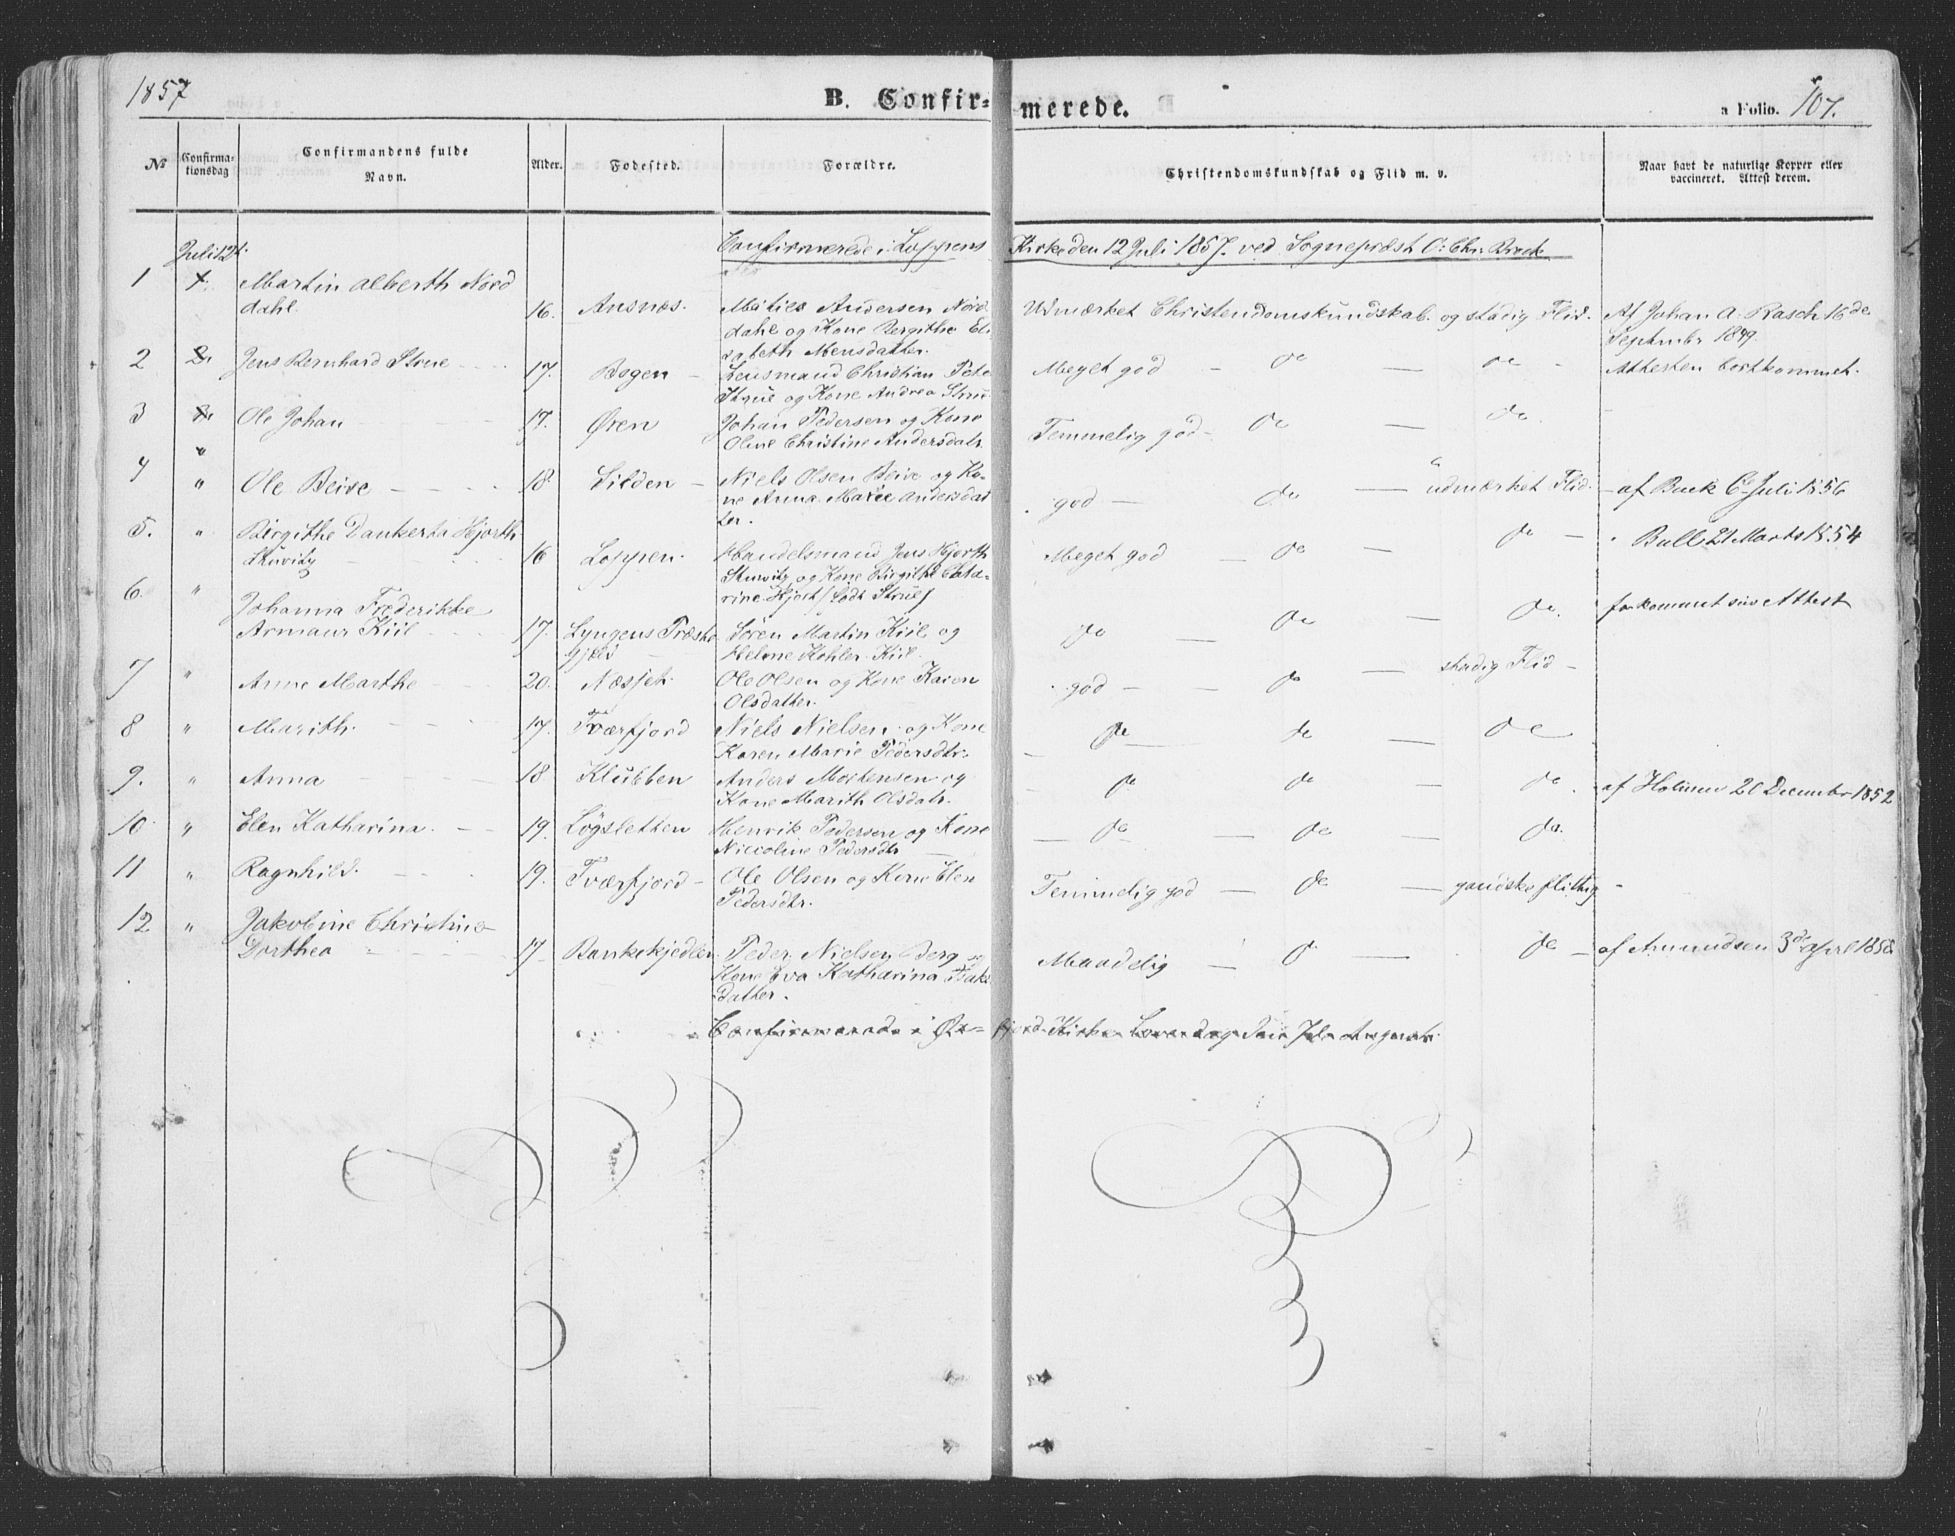 1857
B. Confir-merede.
a Folio. 107.
No Confirmationsdag Confirmandens fulde Navn. Alder. Fødested. Forældre. Christendomskundskab og Flid m. v. Naar havt de naturlige Kopper eller vaccineret. Attest derom.
Juli 12te. Confirmerede i Loppens Kirke den 12 Juli 1857. ved Sognepræst O: Chr.
1 Martin Alberth Nord
dahl. 16. Ansnæs. Maties Andersen Nord Udmærket Christendomskundskab og stadig Flid. Af Johan A: Rasch 16de
dahl og Kone Bergithe Eli Septembr 1849.
sabeth Mensdatter.
2 Jens Bernhard Strue 17. Bogen Lensmand Christian Peter Meget god do do Attesten bortkommet.
Strue og Kone Andrea Strue
3 Ole Johan 17. Øren Johan Pedersen og Kone Temmelig god do do
Oline Christine Andersdatr
4 " Ole Beive 18 Silden Niels Olsen Beive og Ko- god do udmærket Flid. af Buck 6 Juli 1856
ne Anna Marie Andersdat
ter.
5. " Birgithe Dankerta Hjorth
16 Loppen. Handelsmand Jens Hjorth Meget god do do Bull 21 Marts 1854
og Kone Birgithe Catha-
rine Hjort født Strue
6. " Johanna Frederikke
Armaur Kiil 17. Lyngens Præste Søren Martin Kiil og do do do forkommet siin Attest
gjeld Helene Kohler Kiil.
7 " Anne Marthe 20. Næsjet. Ole Olsen og Kone Karen god do stadig Flid
Olsdatter.
8 " Marith. 17. Tværfjord Niels Nielsen og Kone do do do
Karen Marie Pedersdtr.
9. " Anna 18 Klubben Anders Mortensen og do do do af Holmen 20 December 1852
Kone Marith Olsdatr.
10. " Elen Katharina. 19. Løgsletten Henrik Pedersen og Kone do do do.
Niccoline Pedersdtr
11 " Ragnhild. 19. Tværfjord Ole Olsen og Kone Elen Temmelig god do ganske flittig
Pedersdtr.
12 " Jakobine Christine
Dorthea 17 Bankekjedlen Peder Nielsen Berg og Maadelig do do af Amundsen 3de april 1858
Kone Eva Katharina Isaks
datter.
Confirmerede i Øx-fjord Kirke Løverdag August.